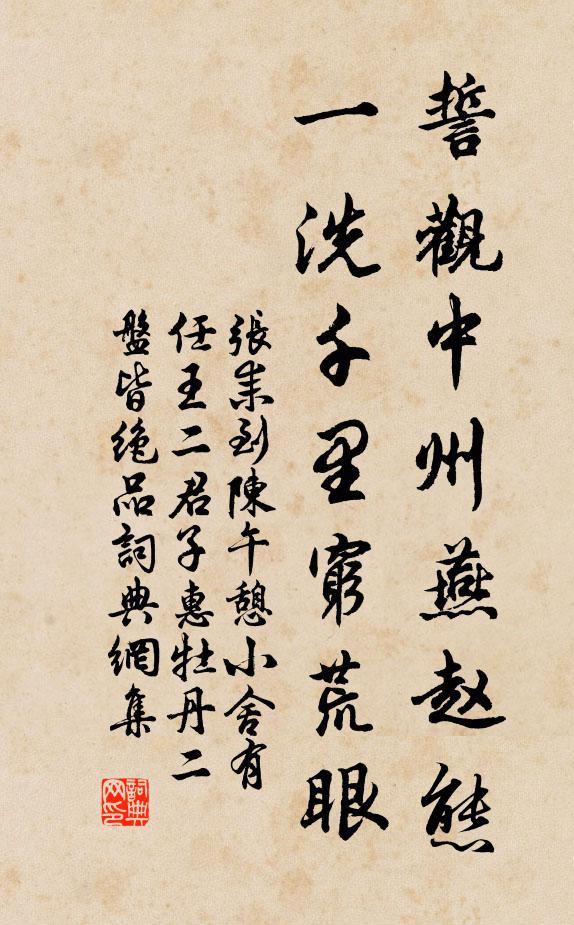 誓觀中州燕赵態
一洗千里窮荒眼
張耒到陳午憩小舍有
任王二君子惠牡丹二
盤皆絕品詞典網集
詞典网印